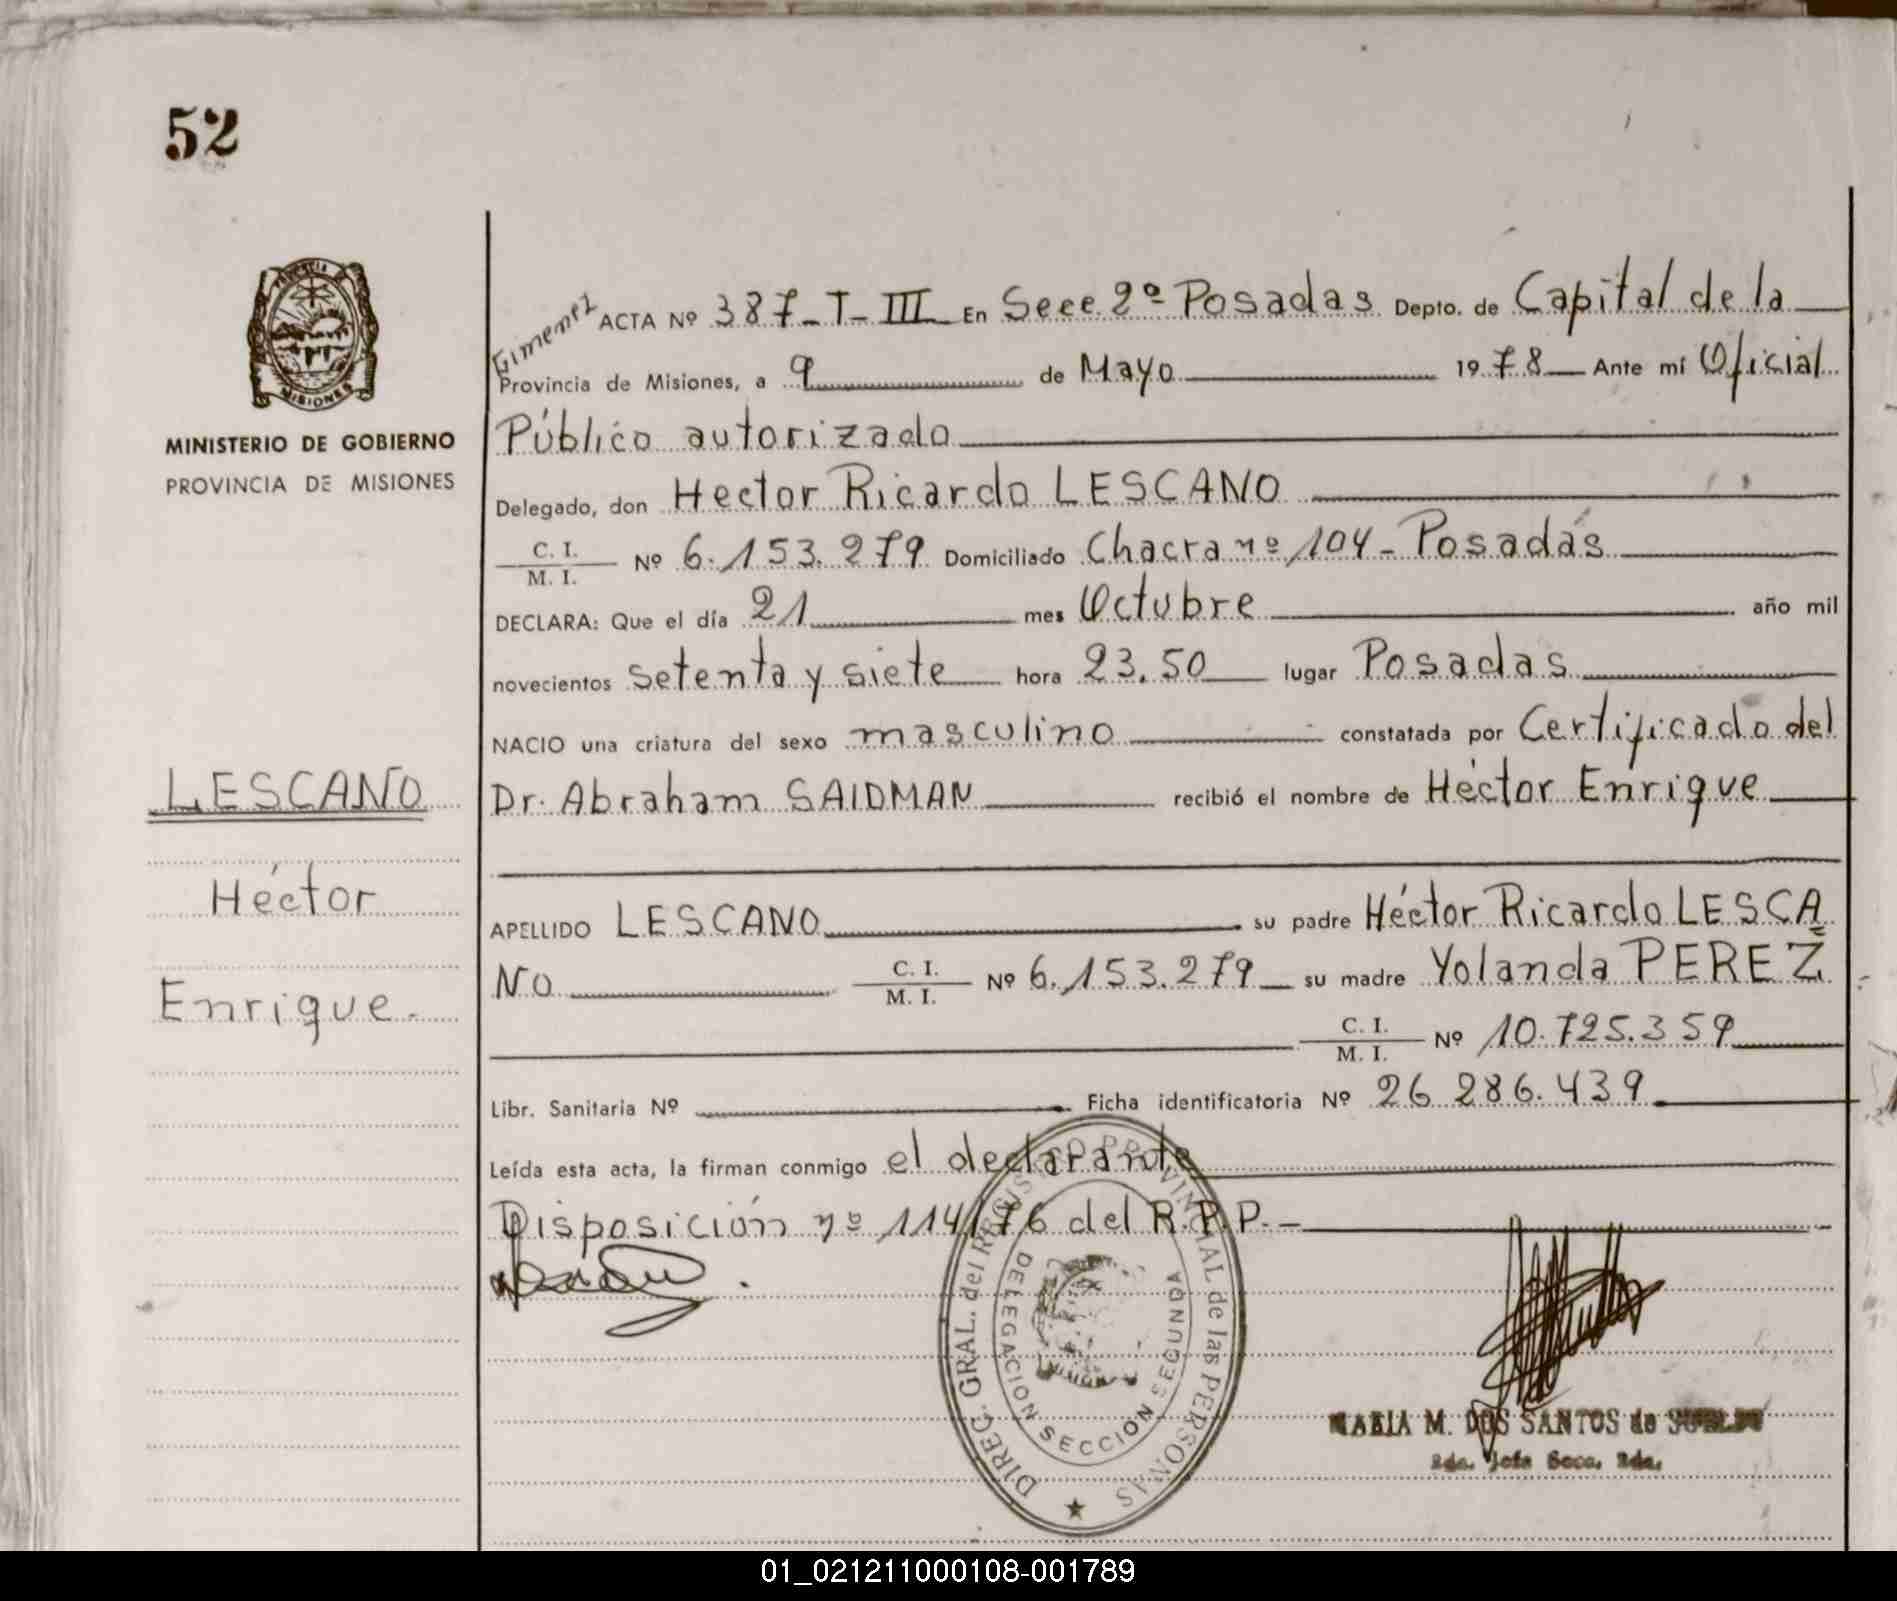 52
PROVINCIA DE
MISIONES
MINISTERIO DE GOBIERNO
PROVINCIA DE MISIONES
LESCANO
Héctor
Enrique.
Gimenez
ACTA Nº 387-T-III En Secc. 2º Posadas Depto. de Capital de la
Provincia de Misiones, a 9 de Mayo 1978 Ante mí Oficial
Público autorizado
Delegado, don Hector Ricardo LESCANO
C. I. / M. I. Nº 6.153.279 Domiciliado Chacra nº 104 - Posadas
DECLARA: Que el día 21 mes Octubre año mil
novecientos setenta y siete hora 23.50 lugar Posadas
NACIO una criatura del sexo masculino constatada por Certificado del
Dr. Abraham SAIDMAN recibió el nombre de Héctor Enrique
APELLIDO LESCANO su padre Héctor Ricardo LESCA
NO C. I. / M. I. Nº 6.153.279 su madre Yolanda PEREZ
C. I. / M. I. Nº 10.725.359
Libr. Sanitaria Nº Ficha identificatoria Nº 26 286.439
Leída esta acta, la firman conmigo el declarante
Disposición nº 114/76 del R.P.P.-
DIREC. GRAL. del REGISTRO PROVINCIAL de las PERSONAS
DELEGACION SECCION SEGUNDA
MARIA M. DOS SANTOS de
2da. Jefa Secc. 2da.
01_021211000108-001789